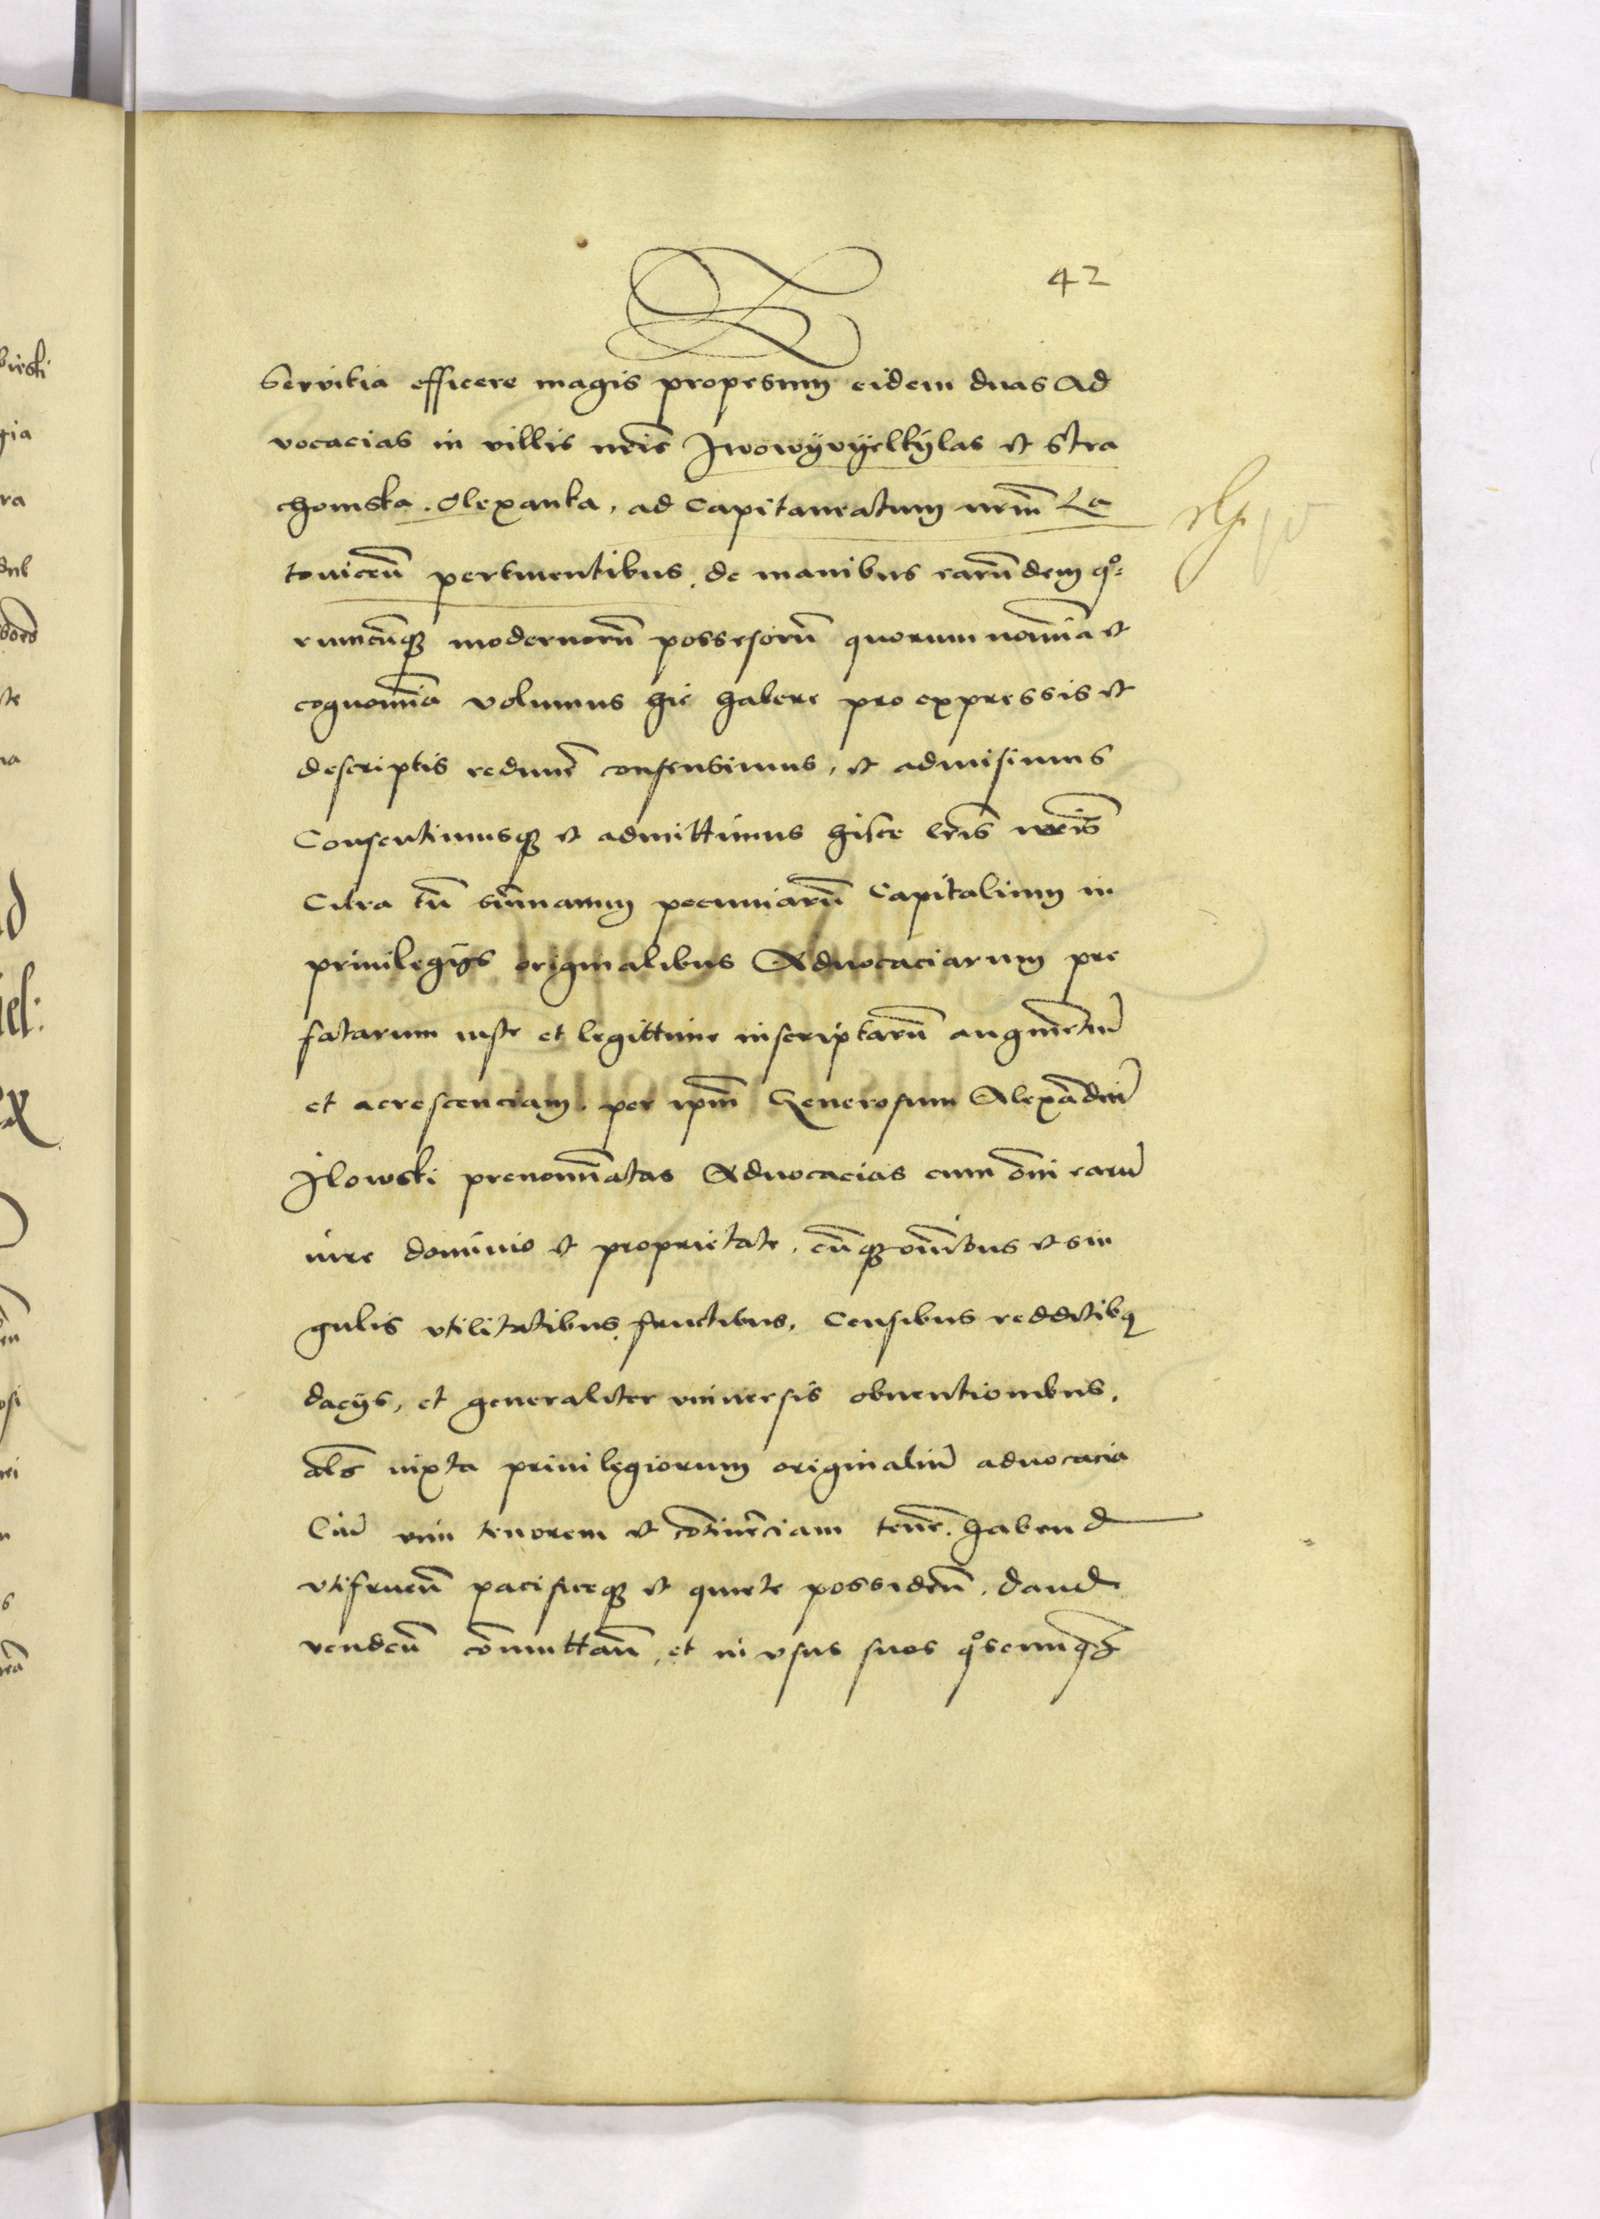 42
Servitia efficere magis propesum eidem duas Ad
vocacias in villis nris Iwowÿvÿelkÿlas et Stra
chomska Olexanka, ad Capitaneatum nrm̄ La
touiceñ pertinentibus de manibus earundem qo:
rumcūq3 modernorū possesorū quorum nomīa et
cognomīa volumus hic habere pro expressis et
descriptis redimē consensimus, et admisimus
Consentimusq3 et admittimus hisce lris nris
Citra tn̄ summamm pecuniarū Capitalium in
priuilegijs originalibus Aduocaciarum pre
fatarum iuste et legittime inscriptarū augmētū
et acrescenciam per ipm̄ Generosum Alexādrū
Jlowski prenomīatas Aduocacias cum om̄i earū
iure dominio et proprietate, cūq3 om̄ibus et sin
gulis vtilitatibus fructibus, Censibus redditibq
dacijs, et generaliter vniuersis obuentionibus,
als iuxta priuilegiorum originaliū aduocacia
Ciū vim tenorem et cōtinēciam tenē habend
vtifrueñ pacificeq3 et quiete possideñ, dand
vendeñ cōmuttañ, et in vsus suos qoscunq3